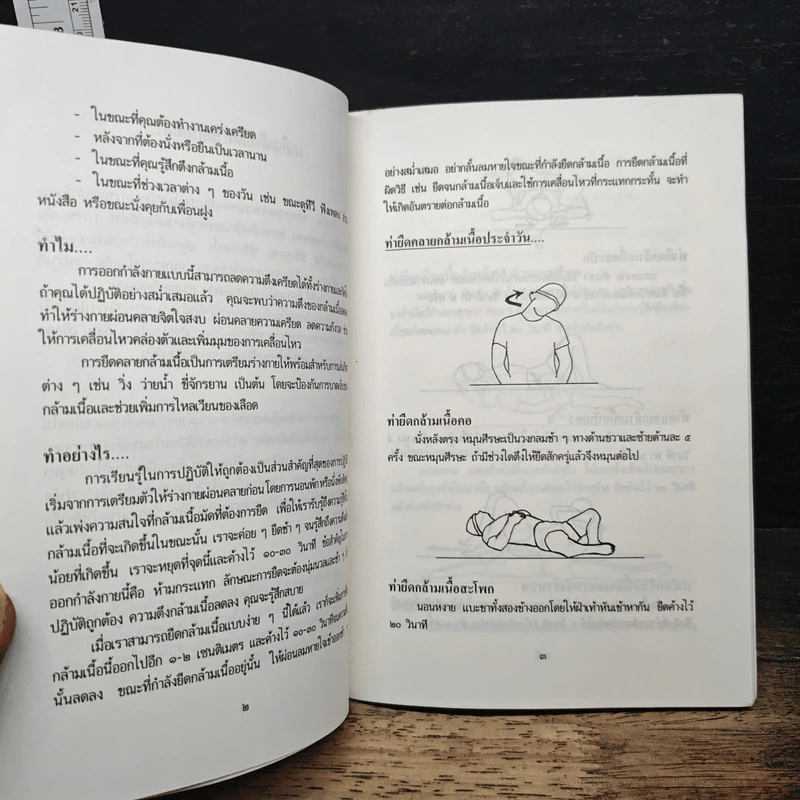 - ในขณะที่คุณต้องทำงานเคร่งเครียด
- หลังจากที่ต้องนั่งหรือยืนเป็นเวลานาน
- ในขณะที่คุณรู้สึกตึงกล้ามเนื้อ
- ในขณะที่ช่วงเวลาต่าง ๆ ของวัน เช่น ขณะดูทีวี ฟังเพลง
หนังสือ หรือขณะนั่งคุยกับเพื่อนฝูง
ทำไม....
การออกกำลังกายแบบนี้สามารถลดความตึงเครียดได้ทั้งร่างกายและจิตใจ
ถ้าคุณได้ปฏิบัติอย่างสม่ำเสมอแล้ว คุณจะพบว่าความตึงของกล้ามเนื้อลดลง
ทำให้ร่างกายผ่อนคลายจิตใจสงบ ผ่อนคลายความเครียด ลดความกังวล
ให้การเคลื่อนไหวคล่องตัวและเพิ่มมุมของการเคลื่อนไหว
การยืดคลายกล้ามเนื้อเป็นการเตรียมร่างกายให้พร้อมสำหรับการ
ต่าง ๆ เช่น วิ่ง ว่ายน้ำ ขี่จักรยาน เป็นต้น โดยจะป้องกันการบาดเจ็บของ
กล้ามเนื้อและช่วยเพิ่มการไหลเวียนของเลือด
ทำอย่างไร....
การเรียนรู้ในการปฏิบัติให้ถูกต้องเป็นส่วนสำคัญที่สุดของการ
เริ่มจากการเตรียมตัวให้ร่างกายผ่อนคลายก่อน โดยการนอนพักหรือนั่งพัก
แล้วเพ่งความสนใจที่กล้ามเนื้อมัดที่ต้องการยืด เพื่อให้เรารับรู้ถึงความรู้สึก
กล้ามเนื้อที่จะเกิดขึ้นในขณะนั้น เราจะค่อย ๆ ยืดช้า ๆ จนรู้สึกถึงความตึง
น้อยที่เกิดขึ้น เราจะหยุดที่จุดนี้และค้างไว้ ๑๐-๓๐ วินาที ข้อสำคัญใน
ออกกำลังกายนี้คือ ห้ามกระแทก ลักษณะการยืดจะต้องนุ่มนวลและช้า ๆ
ปฏิบัติถูกต้อง ความตึงกล้ามเนื้อลดลง คุณจะรู้สึกสบาย
เมื่อเราสามารถยืดกล้ามเนื้อแบบง่าย ๆ นี้ได้แล้ว เราก็จะเพิ่มการ
กล้ามเนื้อนี้ออกไปอีก ๑-๒ เซนติเมตร และค้างไว้ ๑๐-๓๐ วินาทีจนความตึง
นั้นลดลง ขณะที่กำลังยืดกล้ามเนื้ออยู่นั้น ให้ผ่อนลมหายใจเข้าออกช้า ๆ
๒
อย่างสม่ำเสมอ อย่ากลั้นลมหายใจขณะที่กำลังยืดกล้ามเนื้อ การยืดกล้ามเนื้อที่
ผิดวิธี เช่น ยืดจนกล้ามเนื้อเจ็บและใช้การเคลื่อนไหวที่กระแทกกระทั้น จะทำ
ให้เกิดอันตรายต่อกล้ามเนื้อ
ท่ายืดคลายกล้ามเนื้อประจำวัน....
ท่ายืดกล้ามเนื้อคอ
นั่งหลังตรง หมุนศีรษะเป็นวงกลมช้า ๆ ทางด้านขวาและซ้ายด้านละ ๕
ครั้ง ขณะหมุนศีรษะ ถ้ามีช่วงใดตึงให้ยืดสักครู่แล้วจึงหมุนต่อไป
ท่ายืดกล้ามเนื้อสะโพก
นอนหงาย แบะขาทั้งสองข้างออกโดยให้ฝ่าเท้าหันเข้าหากัน ยืดค้างไว้
๒๐ วินาที
๓